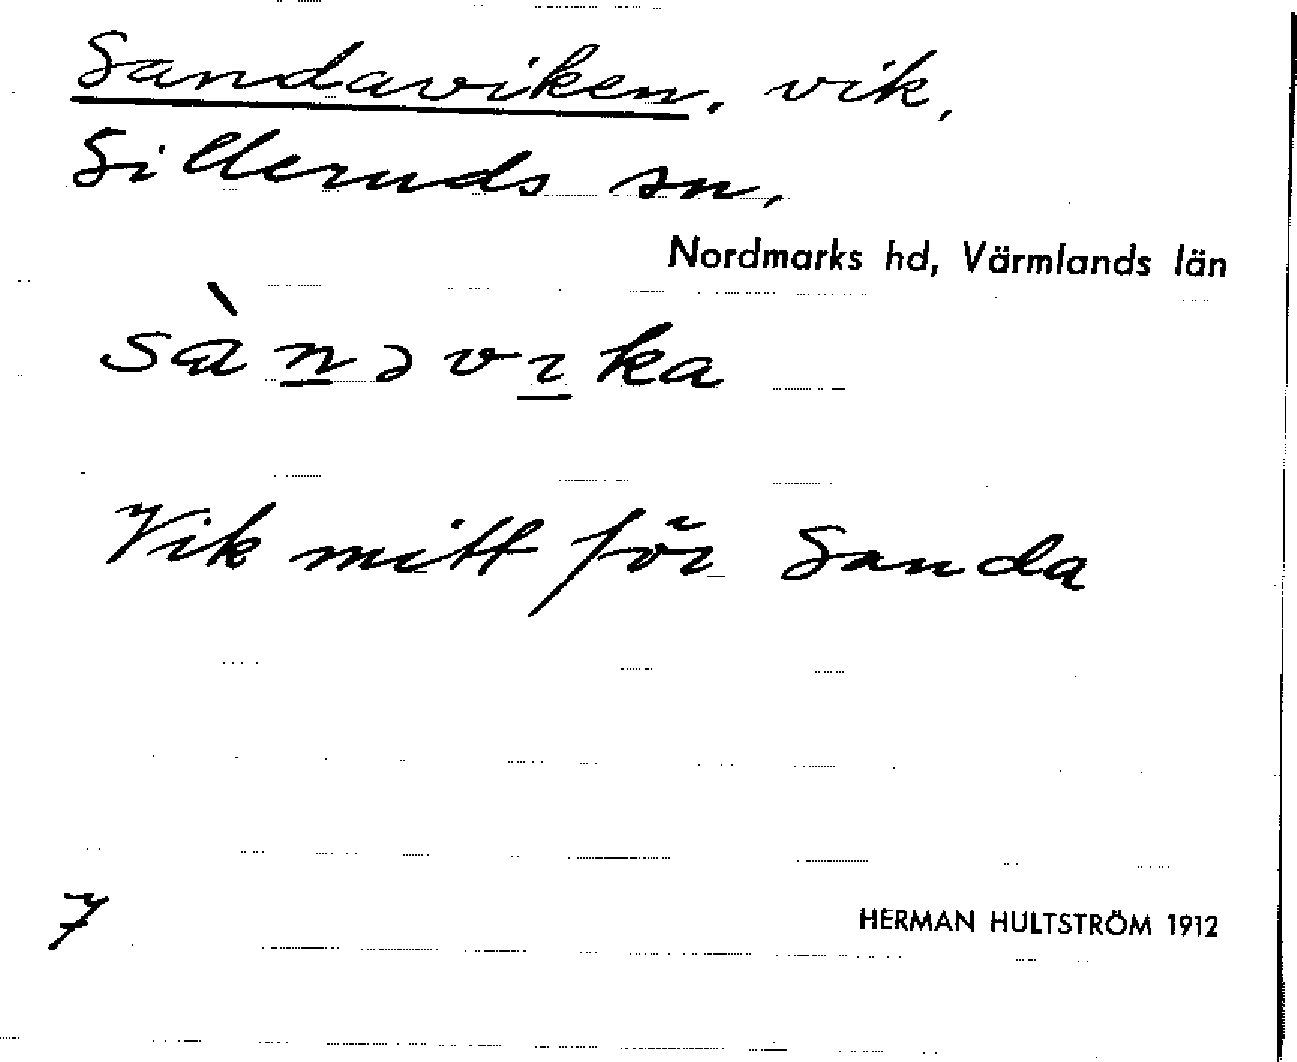 Sandaviken, vik,
Silleruds sn,
Nordmarks hd, Värmlands län
sànəvıka
Vik mitt för Sanda
7
HERMAN HULTSTRÖM 1912